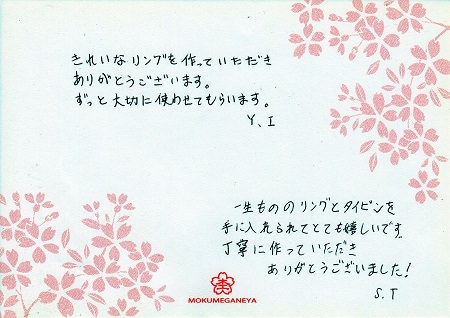 きれいなリングを作っていただき
ありがとうございます。
ずっと大切に使わせてもらいます。
Y、I
一生もののリングとタイピンを
手に入れられてとても嬉しいです。
丁寧に作っていただき
ありがとうございました!
S.T
MOKUMEGANEYA